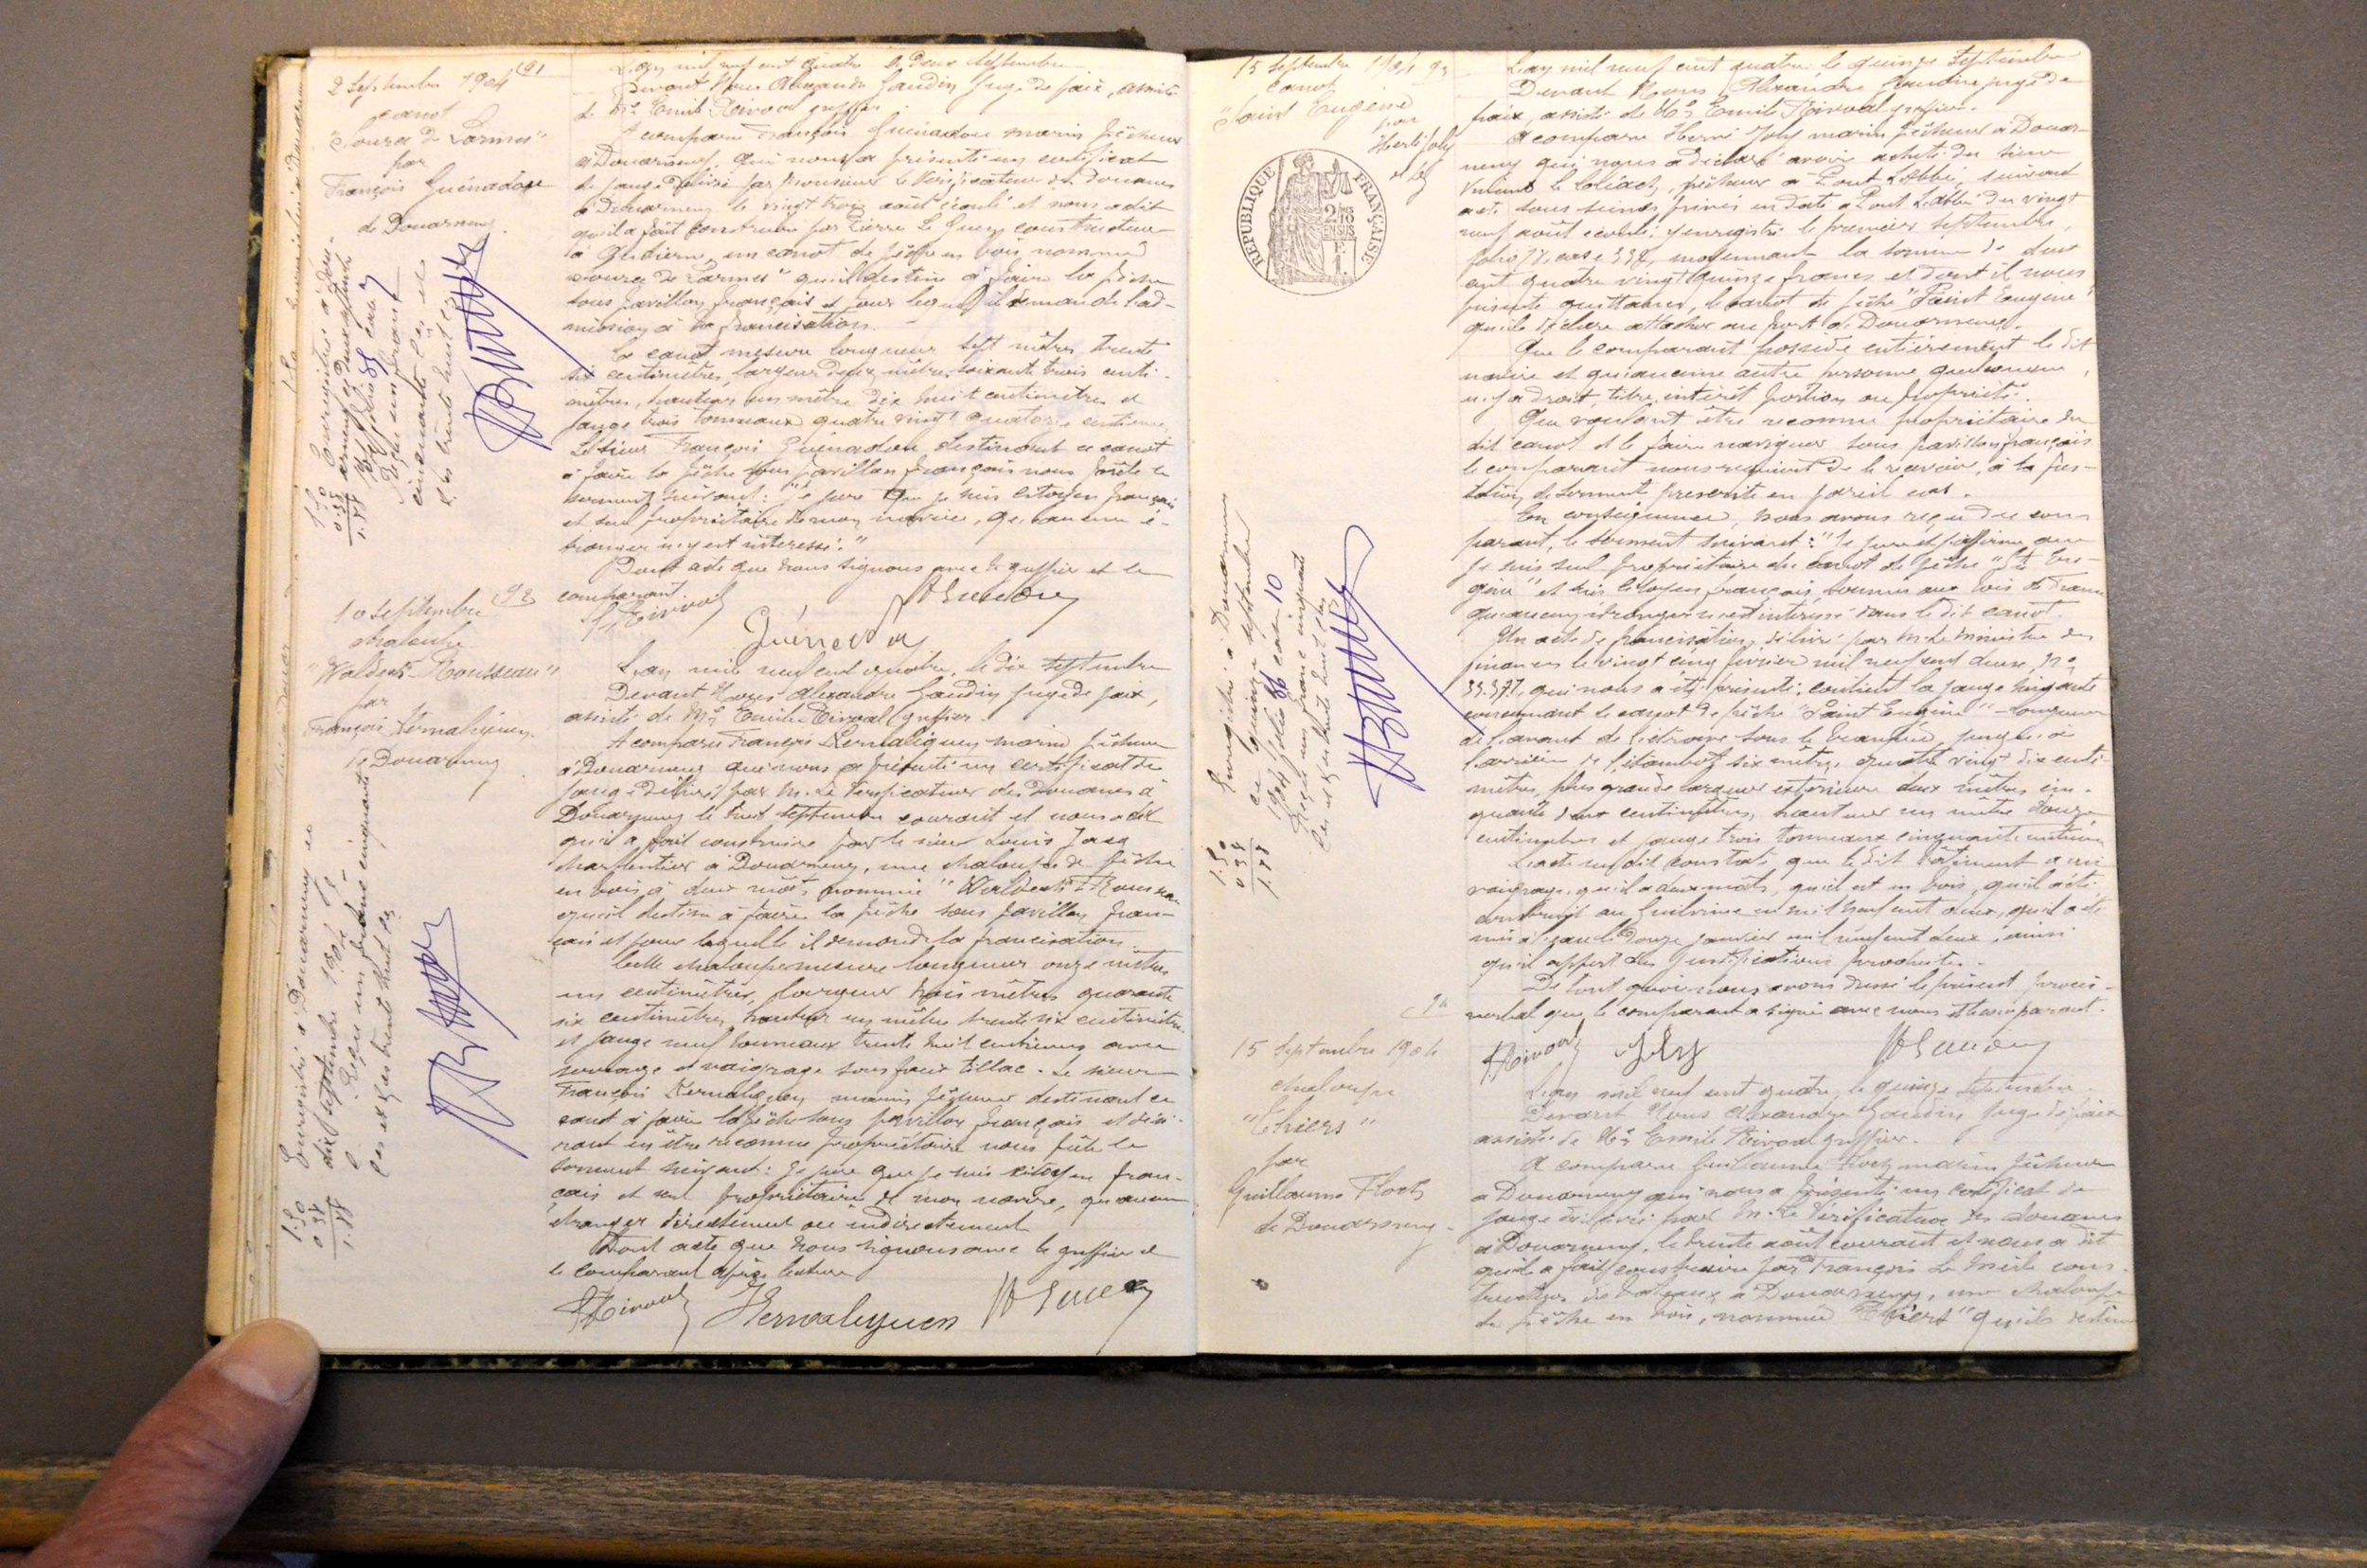 2 Septembre 1904
91
canot
"Source de Larmes"
par
François Guénadou
de Douarnenez.
L'an mil neuf cent quatre le deux Septembre
Devant Nous Alexandre Gaudin Juge de paix, assisté
de Me Emile Rivoal greffier.
A comparu François Guénadou marin pêcheur
à Douarnenez, qui nous a présenté un certificat
de jauge délivré par Monsieur le Vérificateur des Douanes
à Douarnenez le vingt trois août écoulé et nous a dit
qu'il a fait construire par Pierre Le constructeur
à Audierne, un canot de pêche en bois nommé
"Source de Larmes" qu'il destine à faire la pêche
sous pavillon français et pour lequel il demande l'ad-
mission à la francisation.
Ce canot mesure longueur sept mètres trente
six centimètres, largeur deux mètres soixante trois centi-
mètres, hauteur un mètre dix huit centimètres et
jauge trois tonneaux quatre vingt quatorze centièmes
Le sieur François Guénadou destinant ce canot
à faire la pêche sous pavillon français nous prête le
serment suivant: "Je jure que je suis citoyen français
et seul propriétaire de mon navire, qu'aucun é-
tranger n'y est intéressé."
Dont acte que nous signons avec le greffier et le
comparant.
Guénadou
Enregistré à Douar-
nenez ce deux septembre
1904 folio 85 case 7
Reçu un franc
cinquante ces et
des trente huit ces
1.50
0.38
1.88
10 Septembre
92
chaloupe
"Waldeck-Rousseau"
par
François Kernaléguen
de Douarnenez
L'an mil neuf cent quatre, le dix septembre
Devant Nous Alexandre Gaudin juge de paix,
assisté de Me Emile Rivoal greffier.
A comparu François Kernaléguen marin pêcheur
à Douarnenez qui nous a présenté un certificat de
jauge délivré par M. Le Vérificateur des Douanes à
Douarnenez le huit septembre courant et nous a dit
qu'il a fait construire par le sieur Louis Jacq
charpentier à Douarnenez, une chaloupe de pêche
en bois à deux mâts nommée "Waldeck-Rousseau"
qu'il destine à faire la pêche sous pavillon fran-
çais et pour laquelle il demande la francisation.
Cette chaloupe mesure longueur onze mètres
un centimètres, largeur trois mètres quarante
six centimètres, hauteur un mètre trente six centimètres
et jauge neuf tonneaux trente huit centièmes avec
et vaigrage sous faux tillac. Le sieur
François Kernaléguen marin pêcheur destinant ce
canot à faire la pêche sous pavillon français et dési-
rant en être reconnu propriétaire nous prête le
serment suivant: Je jure que je suis citoyen fran-
çais et seul propriétaire de mon navire, qu'aucun
étranger directement ou indirectement
Dont acte que nous signons avec le greffier et
le comparant après lecture
Kernaleguen
Enregistré à Douarnenez ce
dix septembre 1904
Reçu un franc cinquante
ces et des trente huit ces
1.50
0 38
1.88
15 Septembre 1904
93
canot
"Saint Eugène"
par
Hervé Joly
RÉPUBLIQUE FRANÇAISE
L'an mil neuf cent quatre, le quinze Septembre
Devant Nous Alexandre Gaudin juge de
paix, assisté de Me Emile Rivoal greffier.
A comparu Hervé Joly marin pêcheur à Douar-
nenez qui nous a déclaré avoir acheté du sieur
le pêcheur à Pont Labbé, suivant
acte sous seings privés en date à Pont Labbé du vingt
neuf août écoulé, y enregistré le premier septembre,
folio 77, case 538, moyennant la somme de deux
cent quatre vingt quinze francs et dont il nous
présente quittance, le canot de pêche "Saint Eugène"
qu'il déclare attacher au port de Douarnenez.
Que le comparant possède entièrement le dit
navire et qu'aucune autre personne quelconque
n'y a droit, titre, intérêt portion ou propriété.
Que voulant être reconnu propriétaire du
dit canot et le faire naviguer sous pavillon français
le comparant nous requiert de le recevoir, à la pres-
tation de serment prescrite en pareil cas.
En conséquence, nous avons reçu du com-
parant, le serment suivant: "Je jure et j'affirme que
je suis seul propriétaire du canot de pêche "St Eu-
gène" et suis citoyen français, soumis aux lois de France
qu'aucun étranger n'est intéressé dans le dit canot.
Un acte de francisation, délivré par M. Le Ministre des
finances le vingt cinq février mil neuf cent deux, No
qui nous a été présenté, contient la jauge suivante
concernant le canot de pêche "Saint Eugène" - Longueur
de l'avant de l'étrave sous le beaupré, jusqu'à
l'arrière de l'étambot six mètres quatre vingt dix centi-
mètres, plus grande largeur extérieure deux mètres cin-
quante deux centimètres, hauteur un mètre douze
centimètres et jauge trois tonneaux cinquante centièmes
L'acte susdit constate, que le dit bâtiment a un
vaigrage, qu'il a deux mâts, qu'il est en bois, qu'il a été
construit au Guilvinec en mil neuf cent deux, qu'il a été
mis à l'eau le douze janvier mil neuf cent deux, ainsi
qu'il appert des justifications produites.
De tout quoi nous avons dressé le présent procès-
verbal que le comparant a signé avec nous et le comparant.
Joly
Enregistré à Douarnenez
ce quinze septembre
1904 folio 86 case 10
Reçu un franc cinquante
ces et des trente huit ces
1.50
0 38
1.88
94
15 Septembre 1904
chaloupe
"Thiers"
par
Guillaume Floch
de Douarnenez.
L'an mil neuf cent quatre, le quinze Septembre.
Devant Nous Alexandre Gaudin Juge de paix
assisté de Me Emile Rivoal greffier.
A comparu Guillaume Floch marin pêcheur
à Douarnenez qui nous a présenté un certificat de
jauge délivré par M. Le Vérificateur des douanes
à Douarnenez, le trente août courant et nous a dit
qu'il a fait construire par François Le cons-
tructeur de bateaux à Douarnenez, une chaloupe
de pêche en bois, nommée "Thiers" qu'il destine